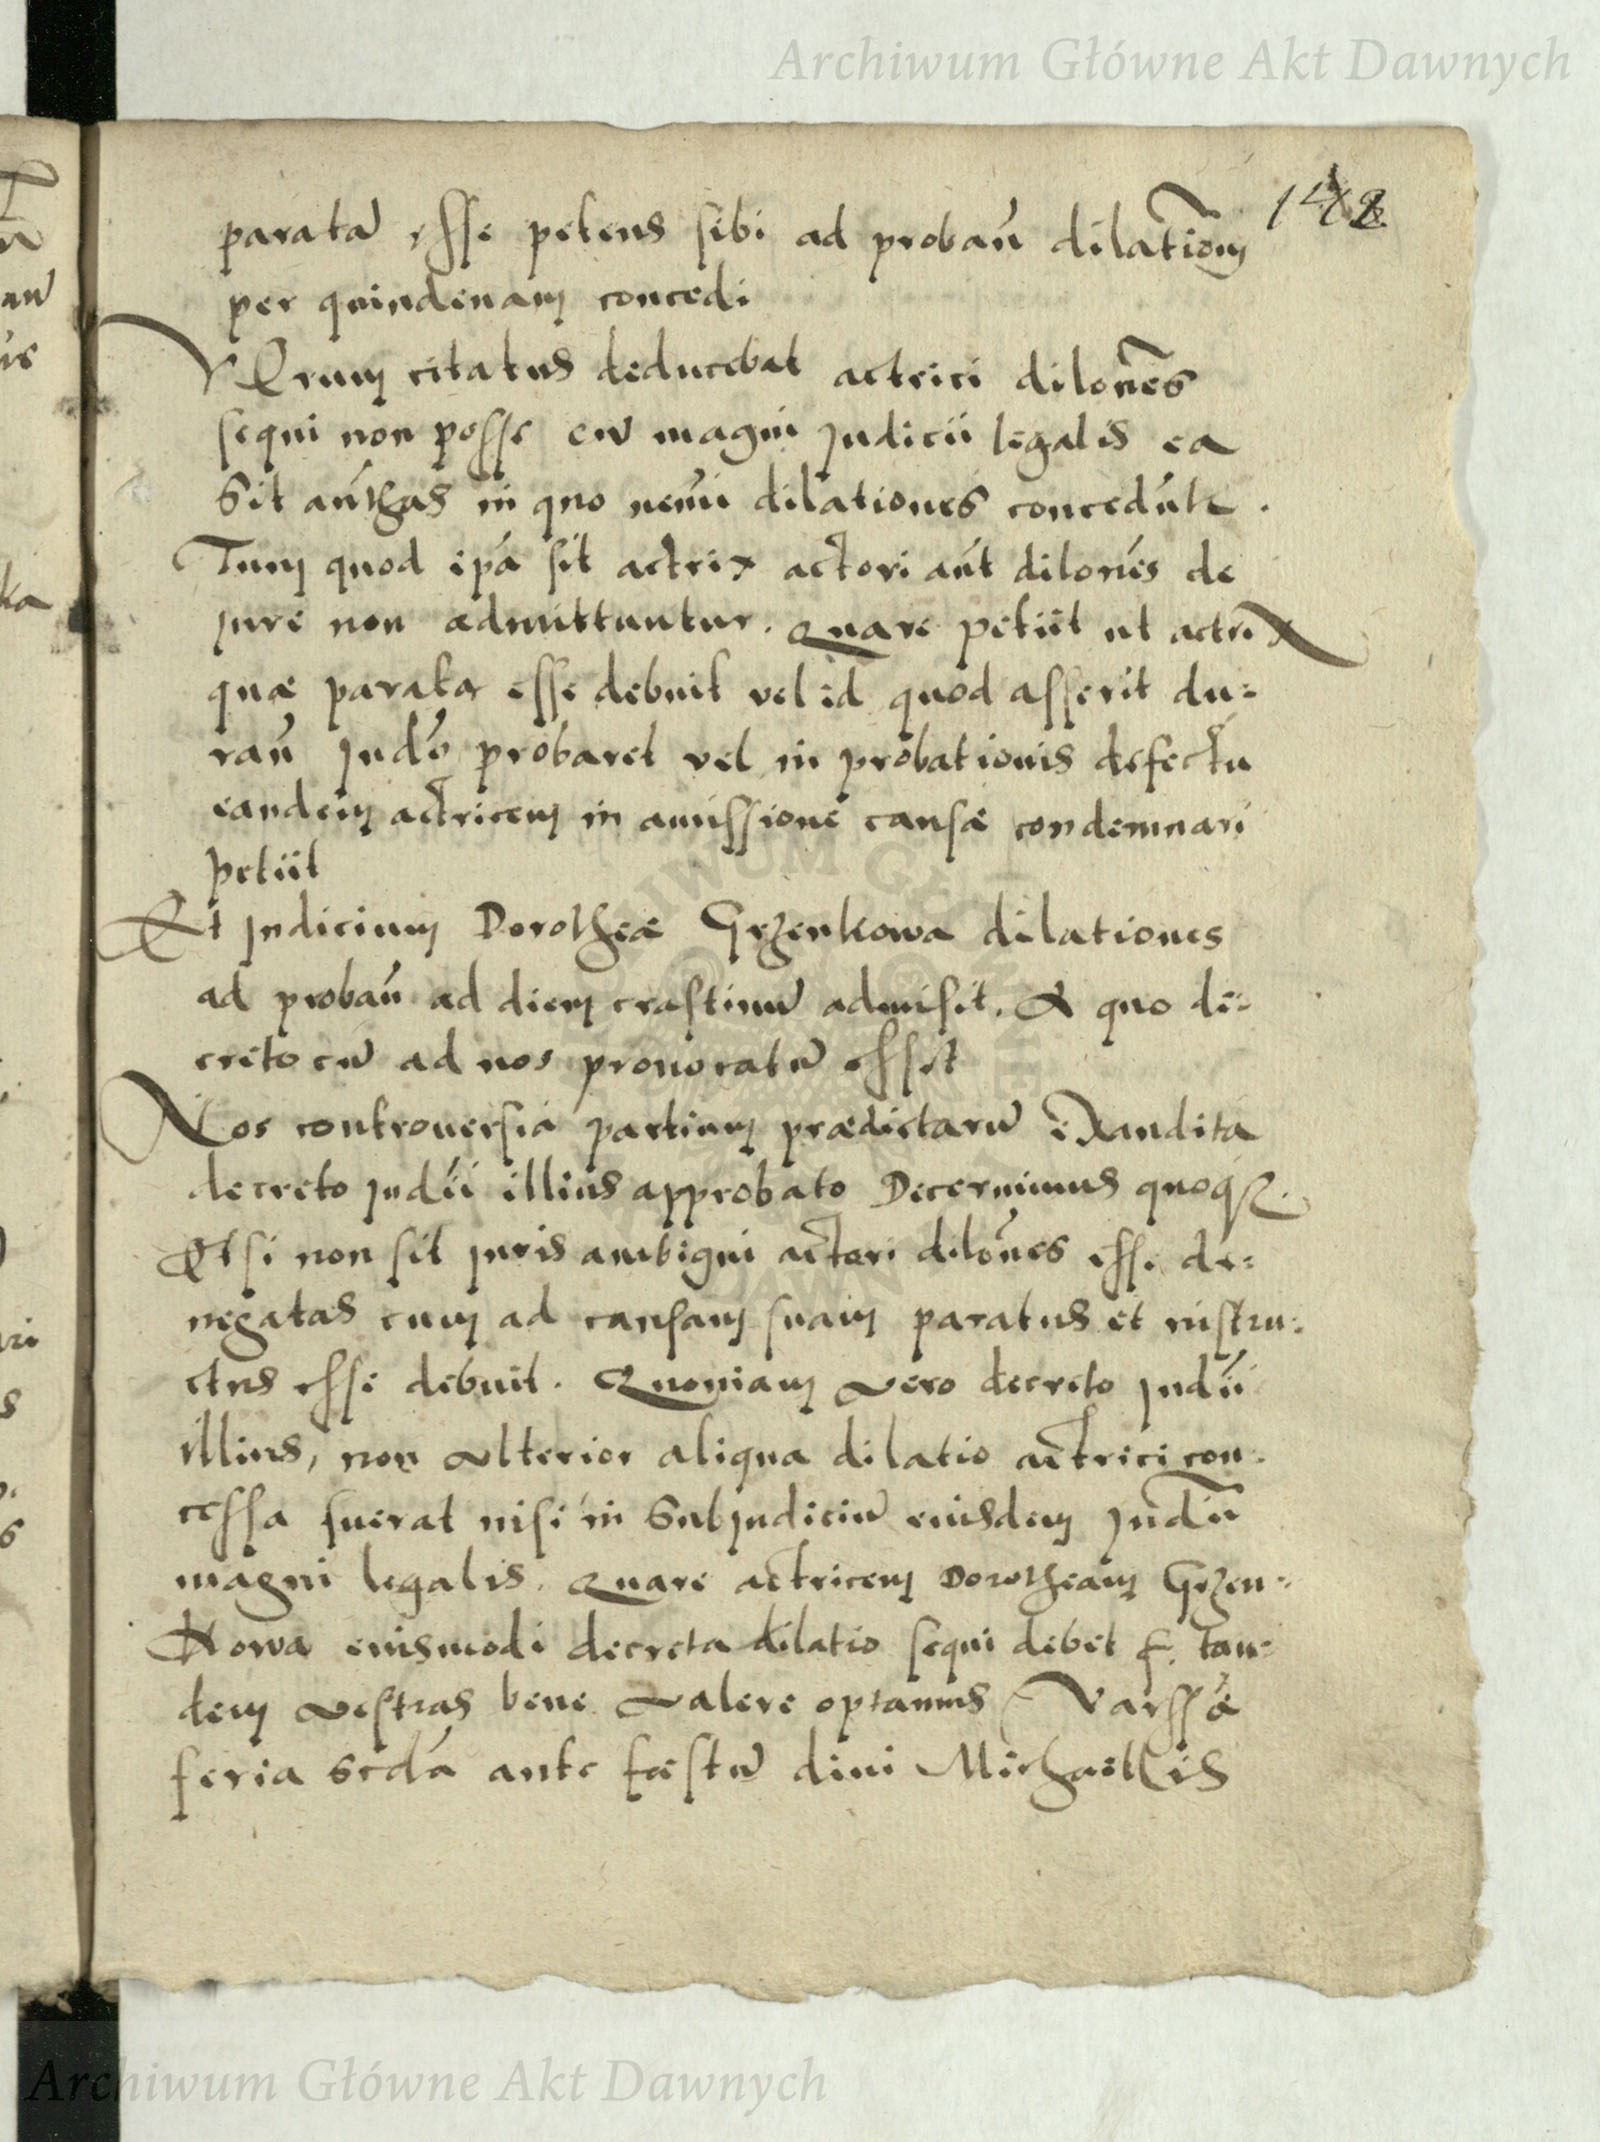 Archiwum Główne Akt Dawnych
142
paratā esse petens sibi ad probañ dilatioñm
per quindenam concedi
VErum citatus deducebat actrici diloñes
sequi non posse cū magni Judicii legalis ea
sit aúthas in quo nemíí dilationes concedútr.
Tum quod ipá sit actrix actori aút diloñes de
jure non admittuntur. Quare petiit ut actrix
quæ parata esse debuit vel id quod asserit du=
rañ Judó probaret vel in probationis defectu
eandem actricem in amissione causæ condemnari
petiit
Et Judicium Dorotheæ Grzenkowa dilationes
ad probañ ad diem crastinū admisit. A quo de=
creto cū ad nos provocatū esset
Nos controversiā partium prædictarū exaudita
decreto Judíi illius approbato Decernimus quoq3.
Etsi non sit juris ambigui actori diloñes esse de=
negatas cum ad causam suam paratus et instru=
ctus esse debuit. Quoniam vero decreto Judíi
illius, non ulterior aliqua dilatio actrici con=
cessa fuerat nisi in subjudiciū eiusdem Judíi
magni legalis. Quare actricem Dorotheam Grzen=
kowa eiusmodi decreta dilatio sequi debet f. tan=
dem vestras bene valere optamus Varssæ
feria scdá ante fæstū divi Michaelis
Archiwum Główne Akt Dawnych